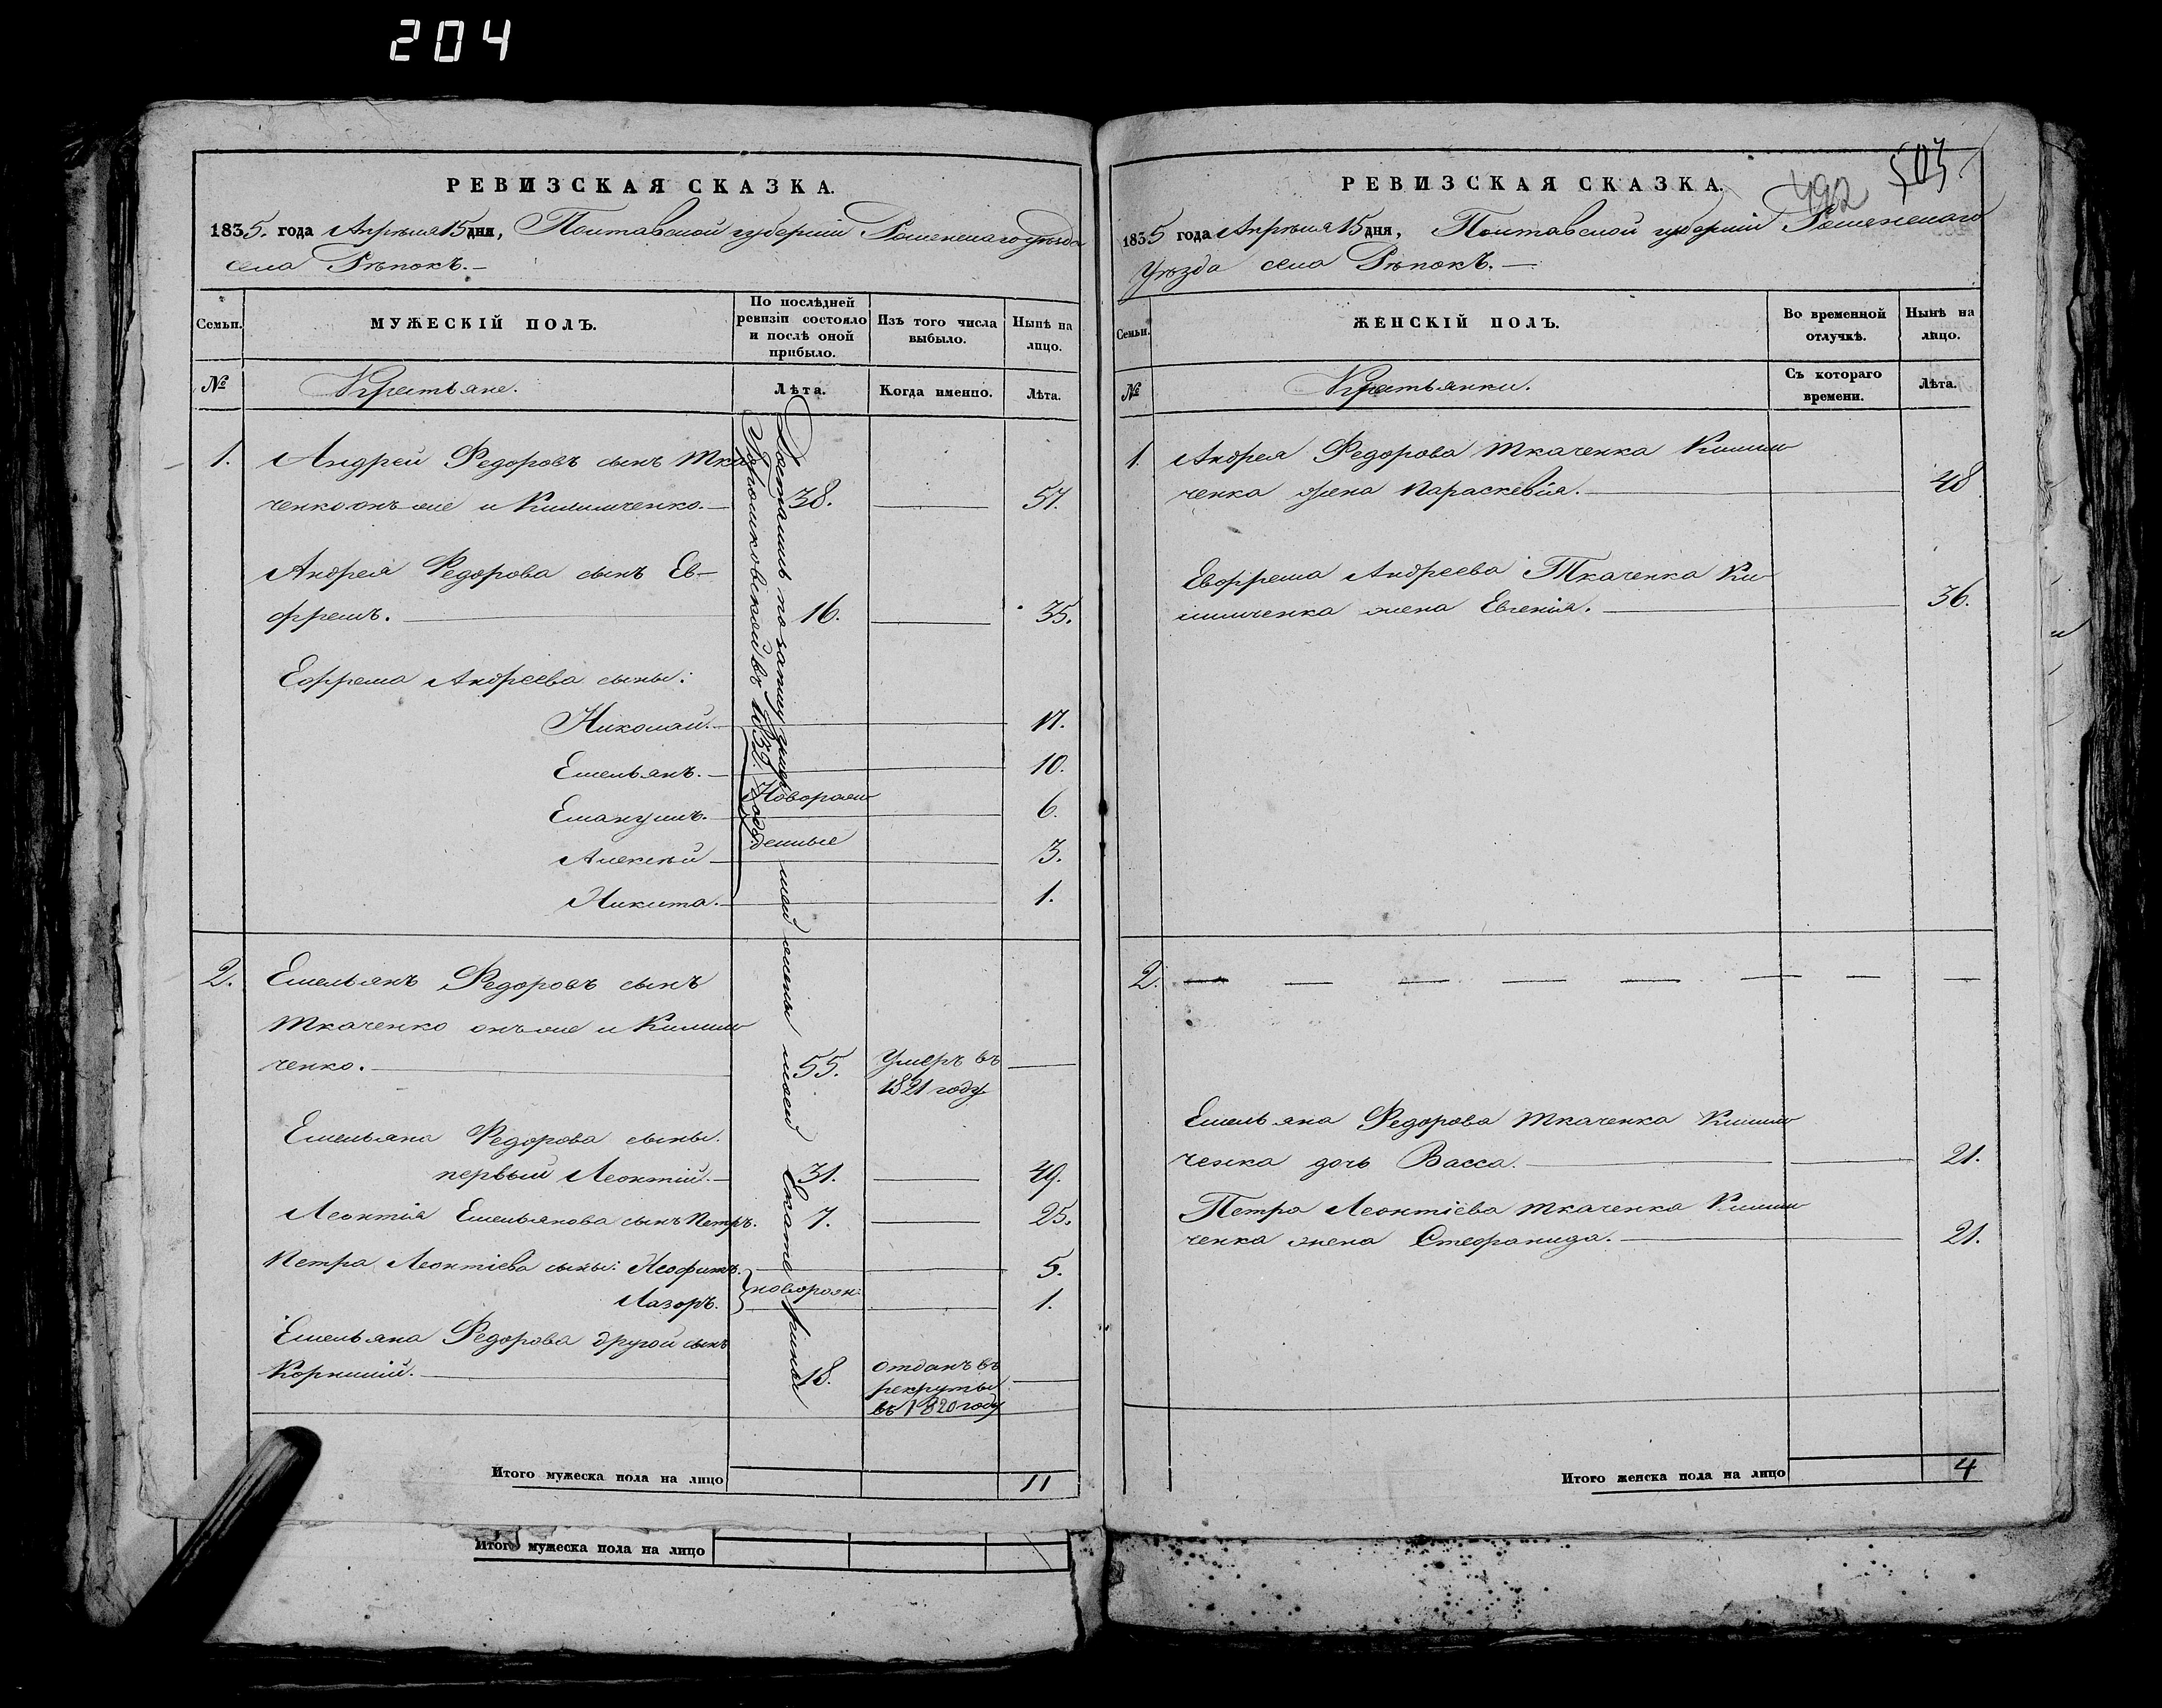 204
РЕВИЗСКАЯ СКАЗКА.
1835. года Апрѣля 15 дня, Полтавской губерніи Роменскаго уѣзда
села Рѣпокъ.
Семьи.
МУЖЕСКІЙ ПОЛЪ.
По послѣдней
ревизіи состояло
и послѣ оной
прибыло.
Изъ того числа
выбыло.
Нынѣ на
лицо.
№
Крестьяне.
Лѣта.
Когда именно.
Лѣта.
1. Андрей Федоровъ сынъ Тка
ченко онъ же и Килимченко. 38. 57.
Андрея Федорова сынъ Ев-
фремъ. 16. 35.
Ефрема Андреева сыны:
Николай. 17.
Емельянъ. 10.
Новорож
Емануилъ. 6.
денные
Алексѣй 3.
Никита. 1.
Достались по запису
моей Екатерины
въ 1832. году
2. Емельянъ Федоровъ сынъ
Ткаченко онъ же и Килим
ченко. 55. Умеръ въ
1821 году
Емельяна Федорова сыны.
первый Леонтій. 31. 49.
Леонтія Емельянова сынъ Петръ. 7. 25.
Петра Леонтіева сыны: Неофитъ. 5.
новорож:
Лазоръ. 1.
Емельяна Федорова другой сынъ
Корнилій. 18. отданъ въ
рекруты
въ 1820 году
Итого мужеска пола на лицо 11
Итого мужеска пола на лицо
503
492
РЕВИЗСКАЯ СКАЗКА.
1835 года Апрѣля 15 дня, Полтавской губерніи Роменскаго
Уѣзда села Рѣпокъ.
Семьи.
ЖЕНСКІЙ ПОЛЪ.
Во временной
отлучкѣ.
Нынѣ на
лицо.
№
Крестьянки.
Съ котораго
времени.
Лѣта.
1. Андрея Федорова Ткаченка Килим
ченка жена Параскевія. 48
Евфрема Андреева Ткаченка Ки
лимченка жена Евгенія. 36.
2.
Емельяна Федорова Ткаченка Килим
ченка дочь Васса. 21.
Петра Леонтіева Ткаченка Килим
ченка жена Стефанида. 21.
Итого женска пола на лицо 4